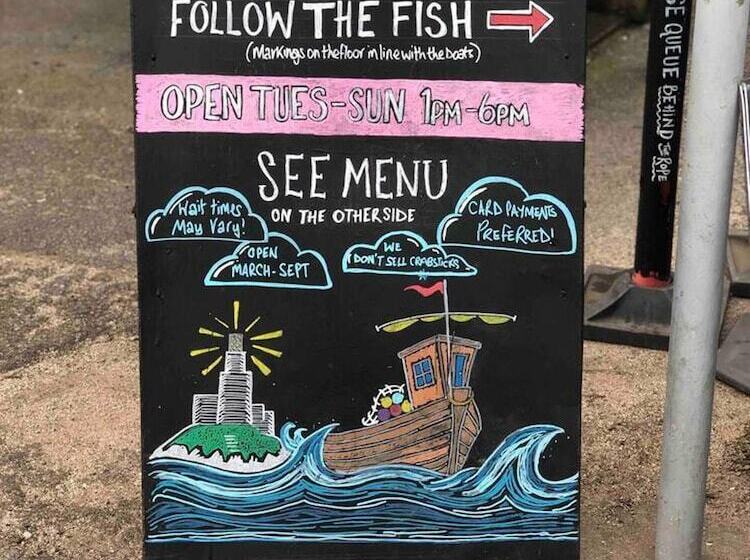 FOLLOW THE FISH
(Markings on the floor in line with the boats)
OPEN TUES-SUN 1PM-6PM
SEE MENU
ON THE OTHERSIDE
Wait times
May Vary!
OPEN
MARCH-SEPT
WE
DON'T SELL CRABSTICKS
CARD PAYMENTS
PREFERRED!
QUEUE BEHIND THE ROPE